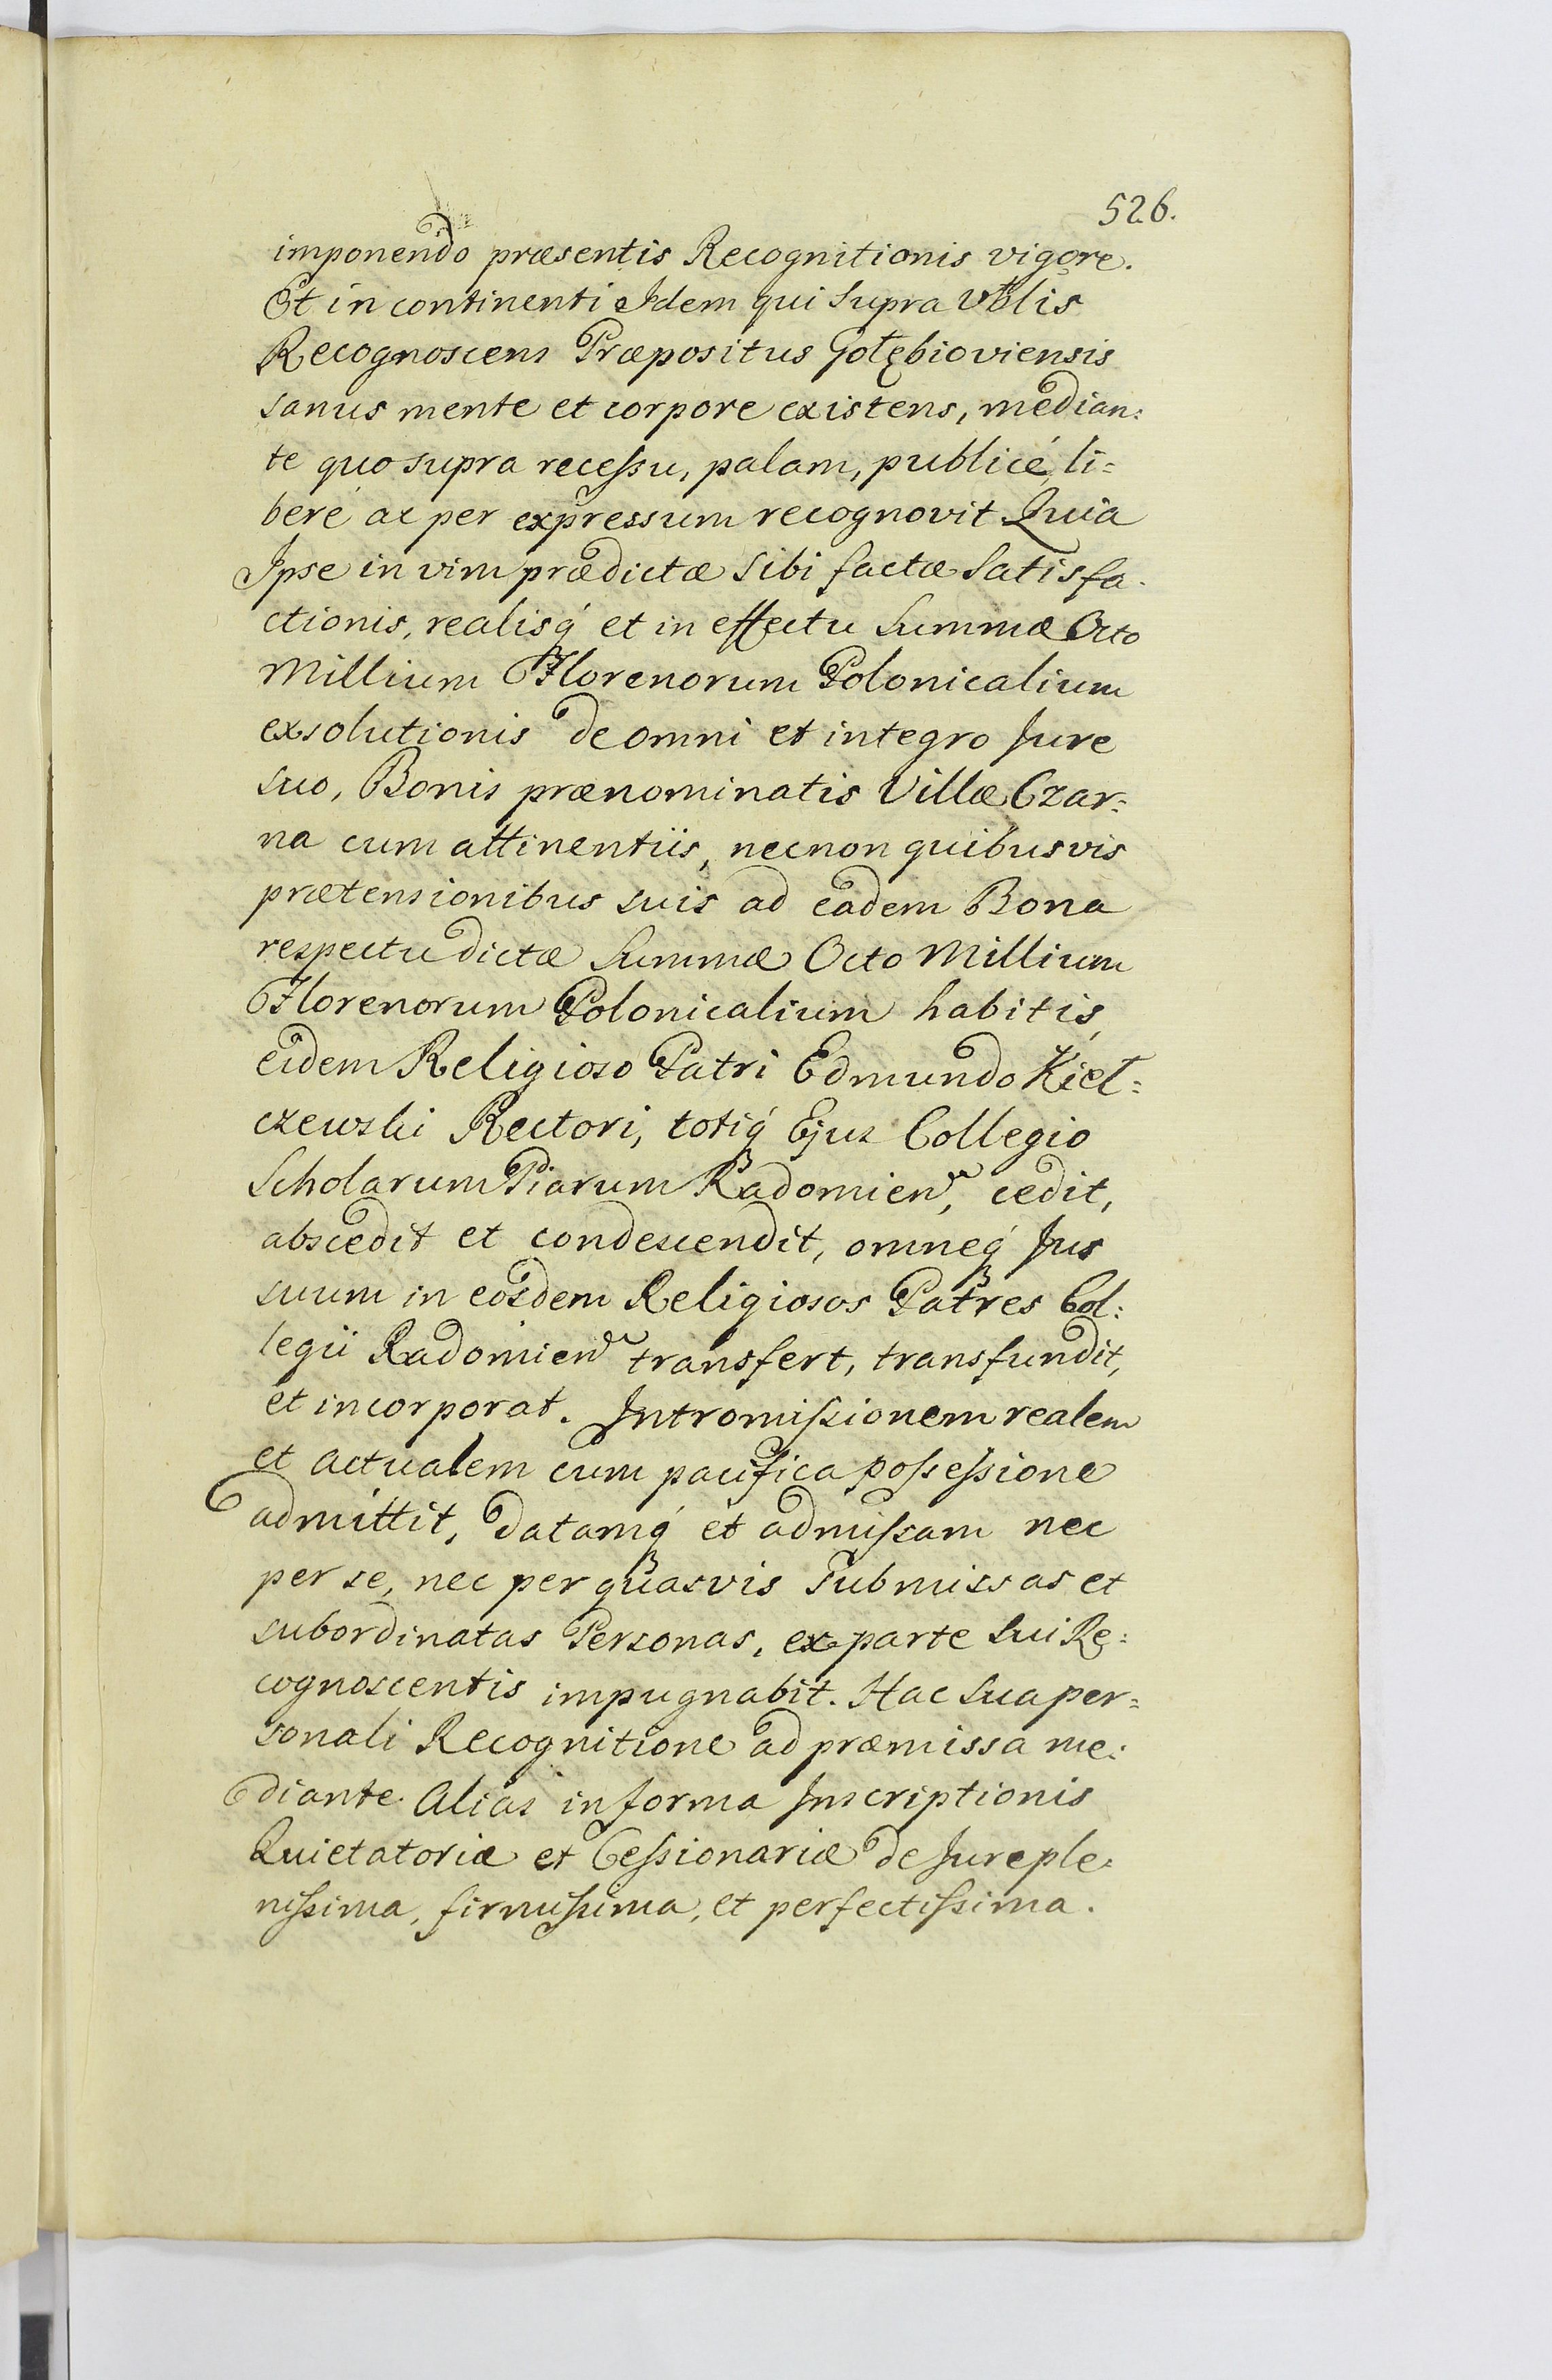 526.
imponendo præsentis Recognitionis vigore.
Et in continenti Idem qui supra Vblis
Recognoscens Præpositus Gołębioviensis
sanus mente et corpore existens, median:
te quo supra recessu, palam, publicé, li=
beré ac per expressum recognovit Quia
Ipse in vim prædictæ sibi factæ Satisfa.
ctionis, realisq́ et in effectu Summæ Octo
Millium Florenorum Polonicalium
exsolutionis de omni et integro Jure
suo, Bonis prænominatis Villæ Czar=
na cum attinentiis, necnon quibusvis
prætensionibus suis ad eadem Bona
respectu dictæ Summæ Octo Millium
Florenorum Polonicalium habitis,
eidem Religioso Patri Edmundo Kieł=
czewski Rectori, totiq́ Ejus Collegio
Scholarum Piarum Radomien, cedit,
abscedit et condescendit, omneq́ Jus
suum in eosdem Religiosos Patres Col:
legii Radomien transfert, transfundit,
et incorporat. Intromissionem realem
et actualem cum pacifica possessione
admittit, datamq́ et admissam nec
per se, nec per quasvis Submissas et
subordinatas Personas, ex parte sui Re:
cognoscentis impugnabit. Hac sua per=
sonali Recognitione ad præmissa me:
diante. Alias in forma Inscriptionis
Quietatoriæ et Cessionariæ de Jure ple:
nissima, firmissima, et perfectissima.